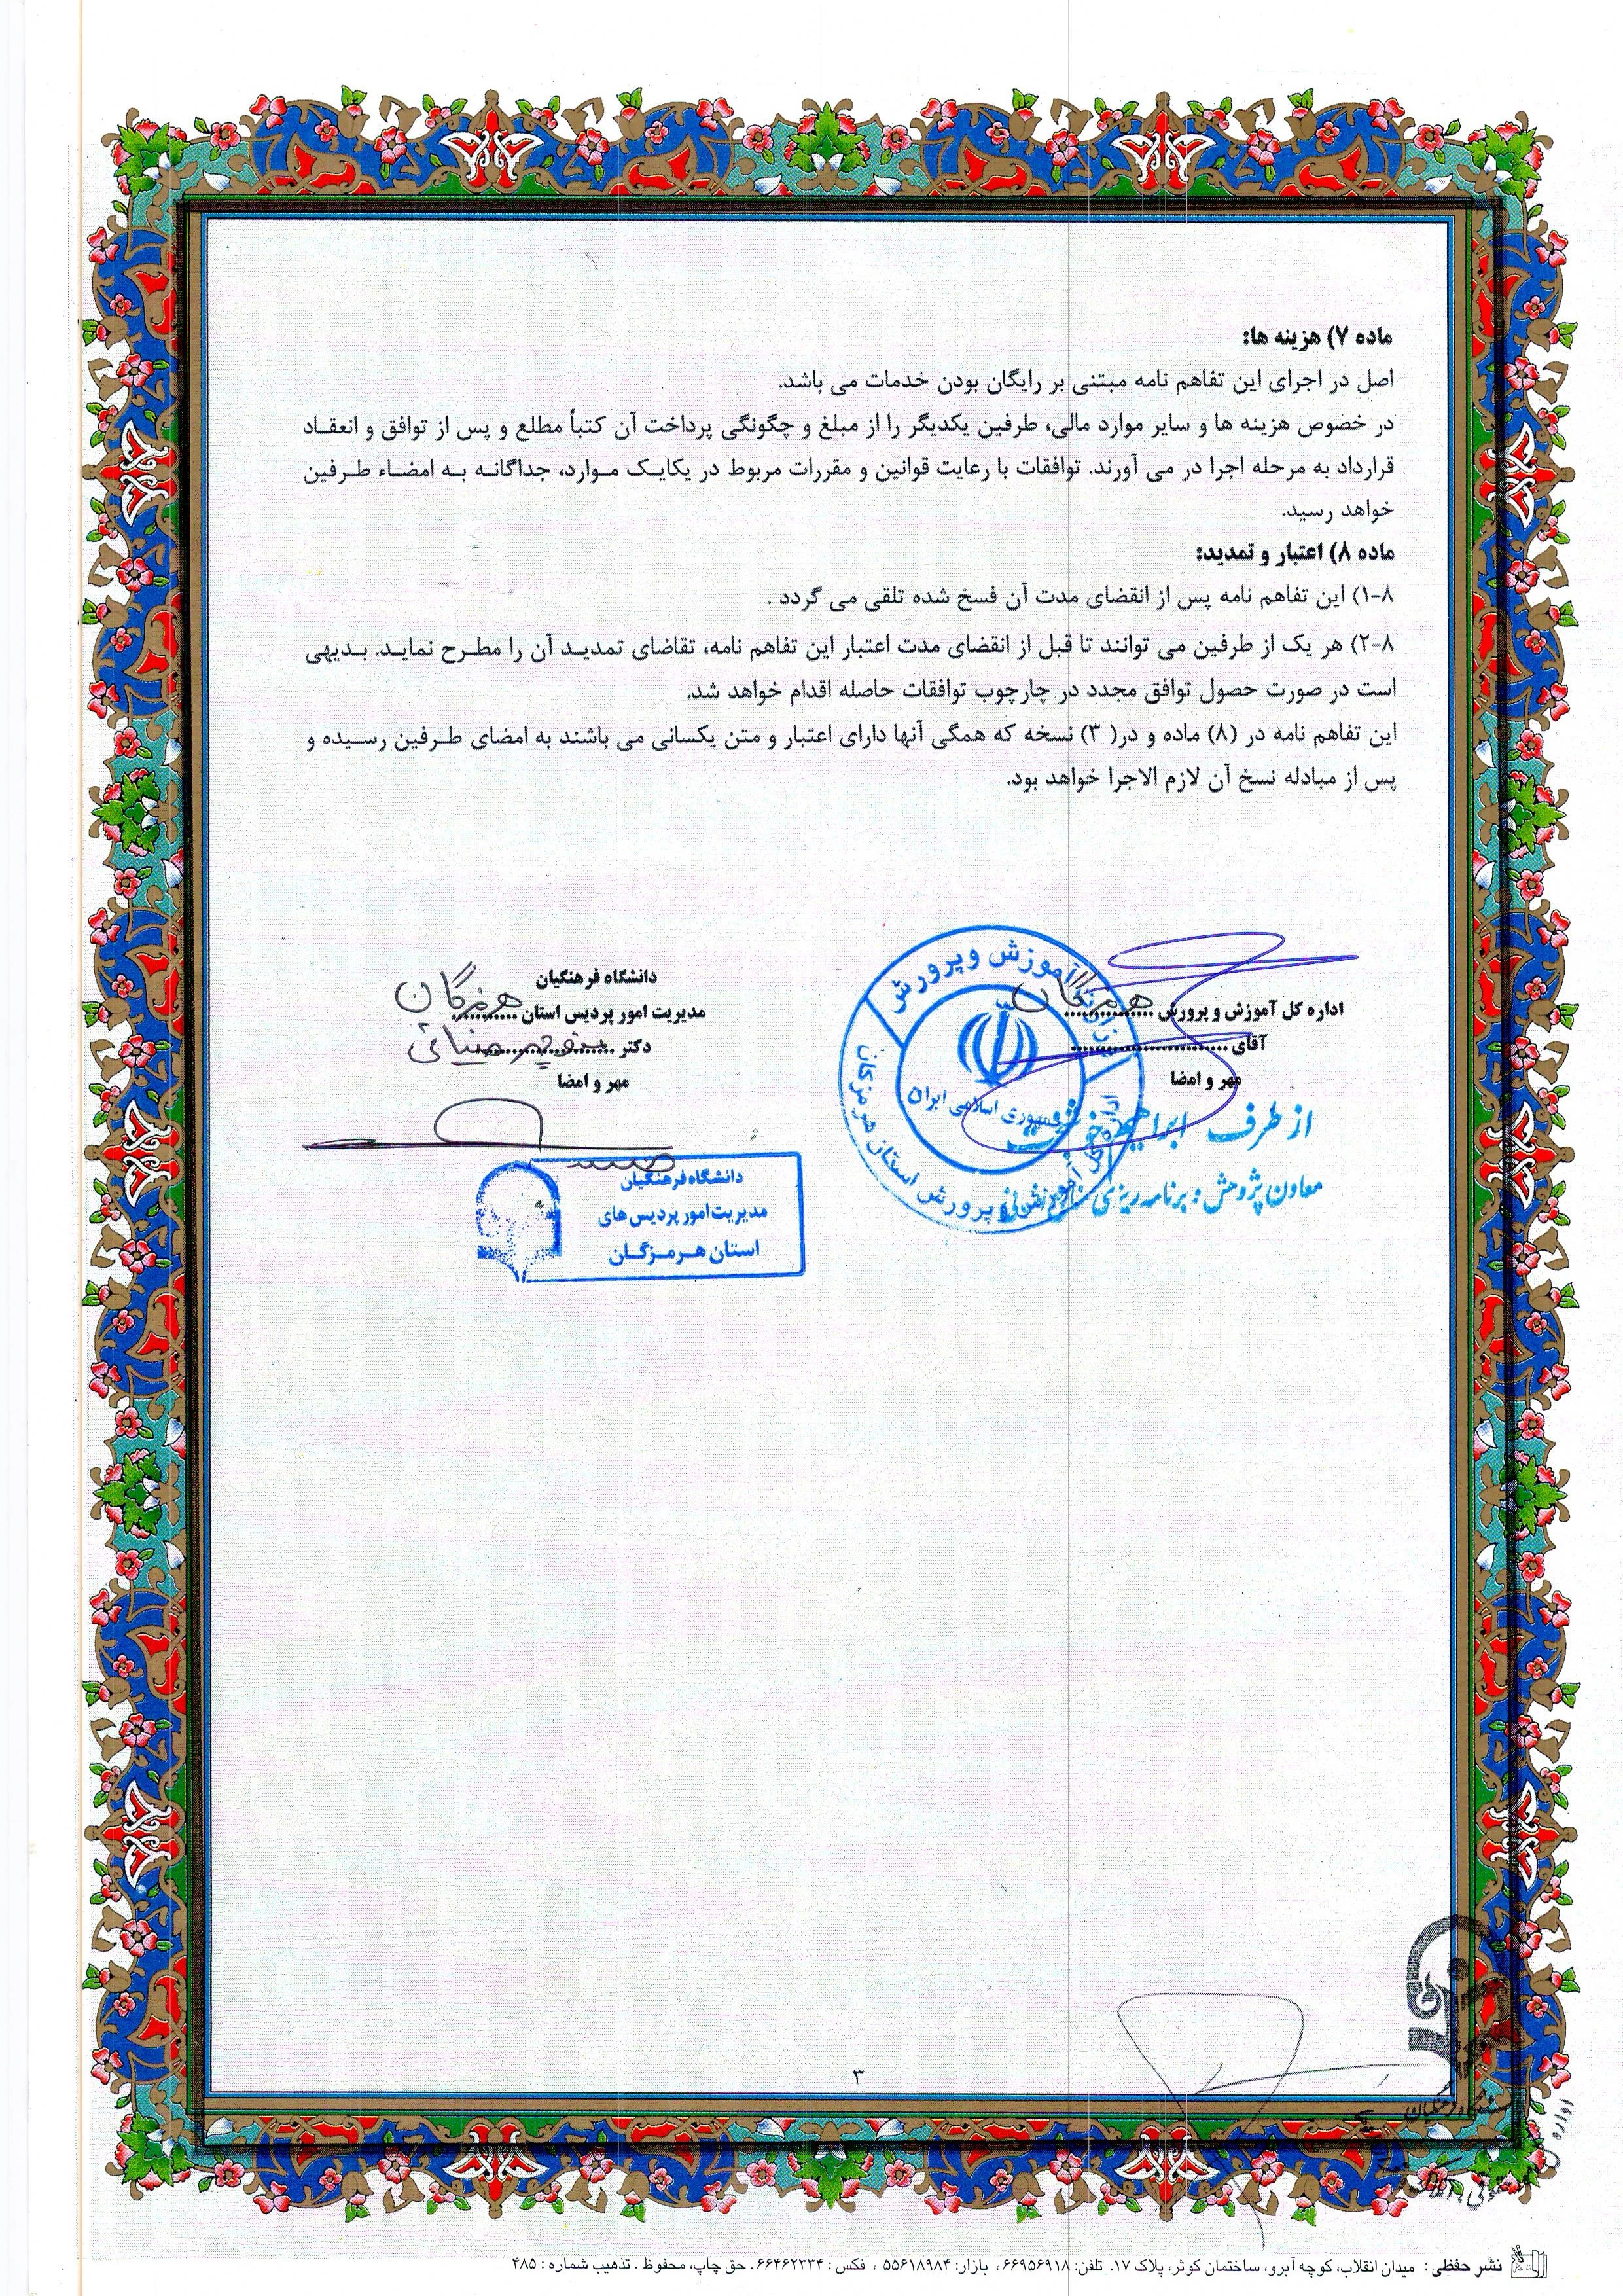 ماده ۷) هزینه ها:
اصل در اجرای این تفاهم نامه مبتنی بر رایگان بودن خدمات می باشد.
در خصوص هزینه ها و سایر موارد مالی، طرفین یکدیگر را از مبلغ و چگونگی پرداخت آن کتباً مطلع و پس از توافق و انعقـاد
قرارداد به مرحله اجرا در می آورند. توافقات با رعایت قوانین و مقررات مربوط در یکایـک مـوارد، جداگانـه بـه امضـاء طـرفین
خواهد رسید.
ماده ۸) اعتبار و تمدید:
۸-۱) این تفاهم نامه پس از انقضای مدت آن فسخ شده تلقی می گردد .
۸-۲) هر یک از طرفین می توانند تا قبل از انقضای مدت اعتبار این تفاهم نامه، تقاضای تمدیـد آن را مطـرح نمایـد. بـدیهی
است در صورت حصول توافق مجدد در چارچوب توافقات حاصله اقدام خواهد شد.
این تفاهم نامه در (۸) ماده و در( ۳) نسخه که همگی آنها دارای اعتبار و متن یکسانی می باشند به امضای طـرفین رسـیده و
پس از مبادله نسخ آن لازم الاجرا خواهد بود.
اداره کل آموزش و پرورش هرمزگان
آقای ..............................
مهر و امضا
از طرف ابراهیم
معاون پژوهش و برنامه ریزی
آموزش و پرورش
جمهوری اسلامی ایران
اداره کل آموزش و پرورش استان هرمزگان
دانشگاه فرهنگیان
مدیریت امور پردیس استان هرمزگان
دکتر منوچهر مینائی
مهر و امضا
دانشگاه فرهنگیان
مدیریت امور پردیس های
استان هـرمـزگـان
۳
نشر حفظی : میدان انقلاب، کوچه آبرو، ساختمان کوثر، پلاک ۱۷. تلفن: ۶۶۹۵۶۹۱۸ ، بازار: ۵۵۶۱۸۹۸۴ ، فکس : ۶۶۴۶۲۳۳۴ . حق چاپ، محفوظ . تذهیب شماره : ۴۸۵